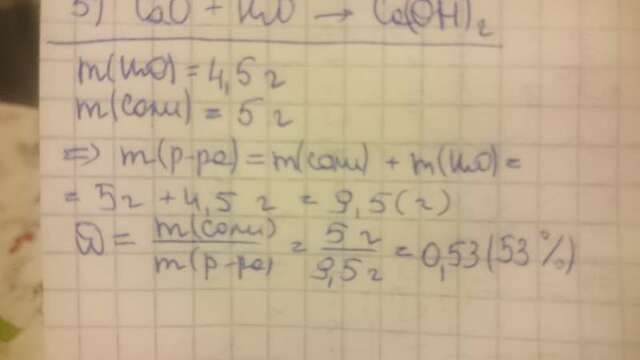 5) CaO + H₂O → Ca(OH)₂
m(H₂O) = 4,5 г
m(соли) = 5 г
=> m(р-ра) = m(соли) + m(H₂O) =
= 5г + 4,5 г = 9,5 (г)
ω = m(соли) / m(р-ра) = 5 г / 9,5 г = 0,53 (53%)